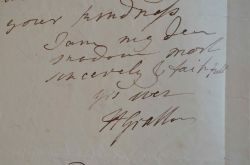 your kindness
I am my dear
most
sincerely & faithfully
yrs ever
HGrattan